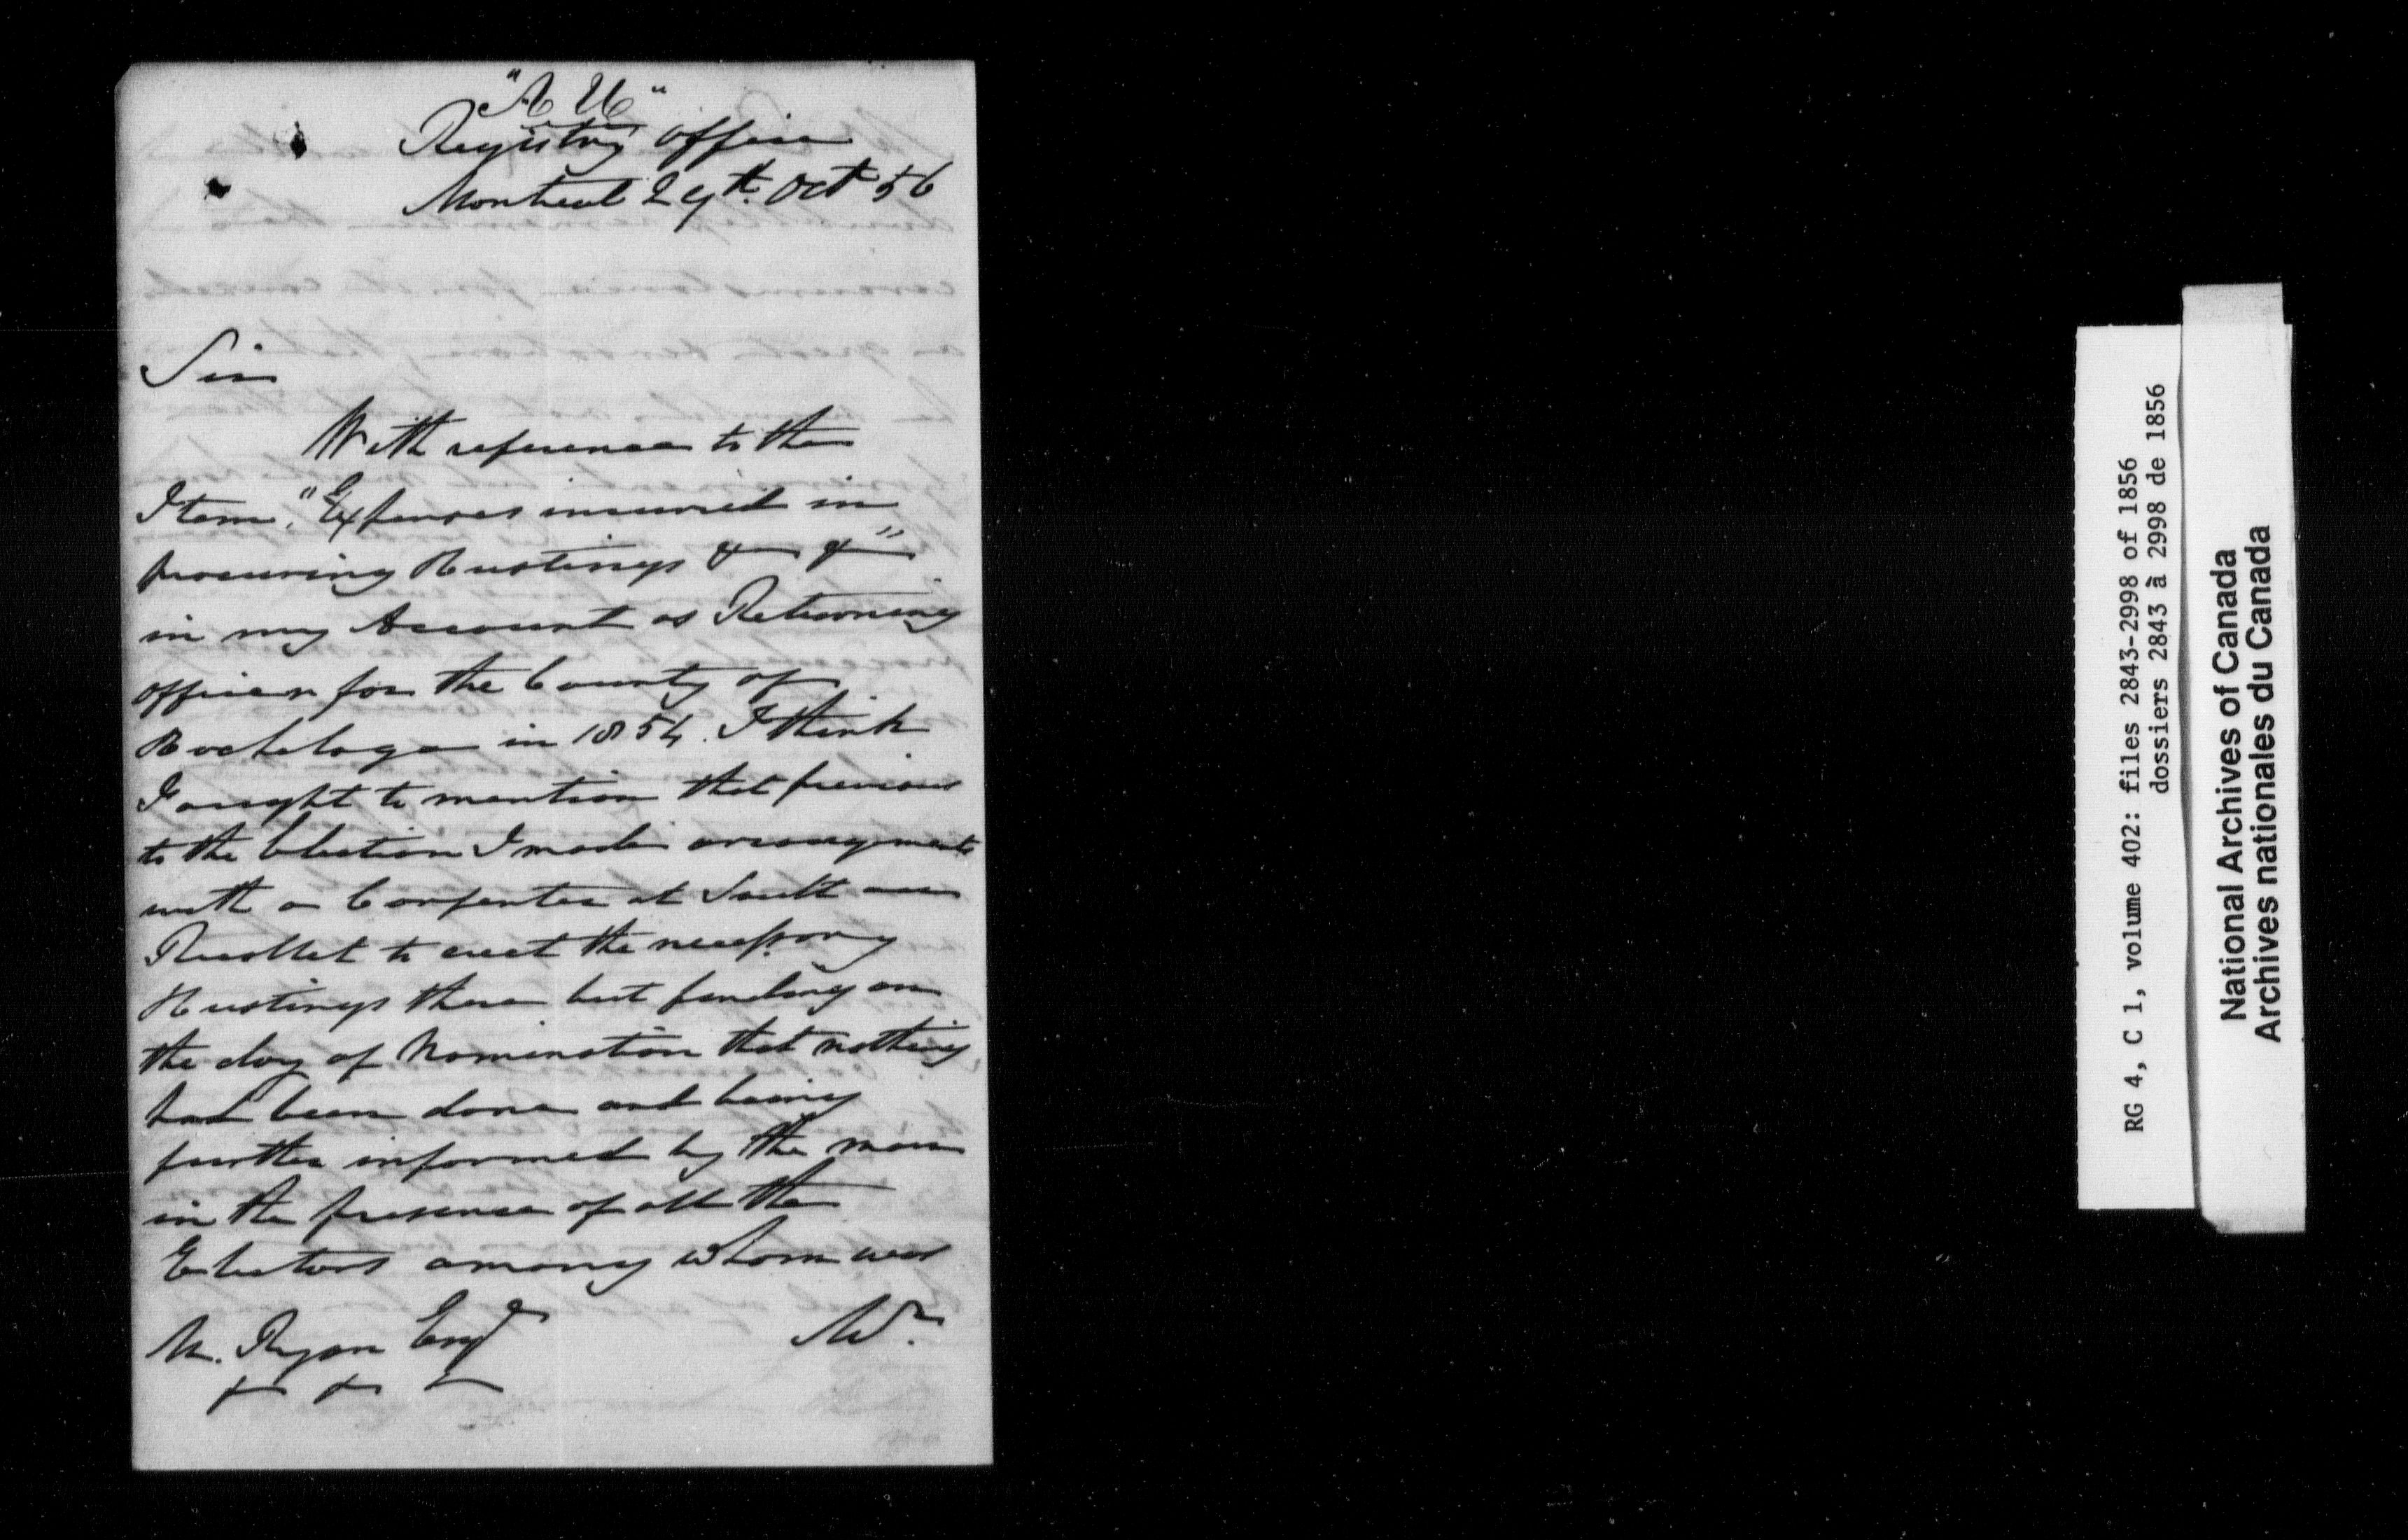 Registry Office
Montreal 29th. Oct 56
Sir
With reference to the
Item, "Expenses incurred in
procuring Hustings &c &c"
in my Account as Returning
Officer for the County of
Hochelaga in 1854. I think
I ought to mention that previous
to the Election I made arrangements
with a Carpenter at Sault au
Recollet to erect the necessary
Hustings there but finding on
the day of Nomination that nothing
had been done and being
further informed by the man
in the presence of all the
Electors among whom was
M. Ryan Esqr
&c &c &c
RG 4, C 1, volume 402: files 2843-2998 of 1856
dossiers 2843 à 2998 de 1856
National Archives of Canada
Archives nationales du Canada